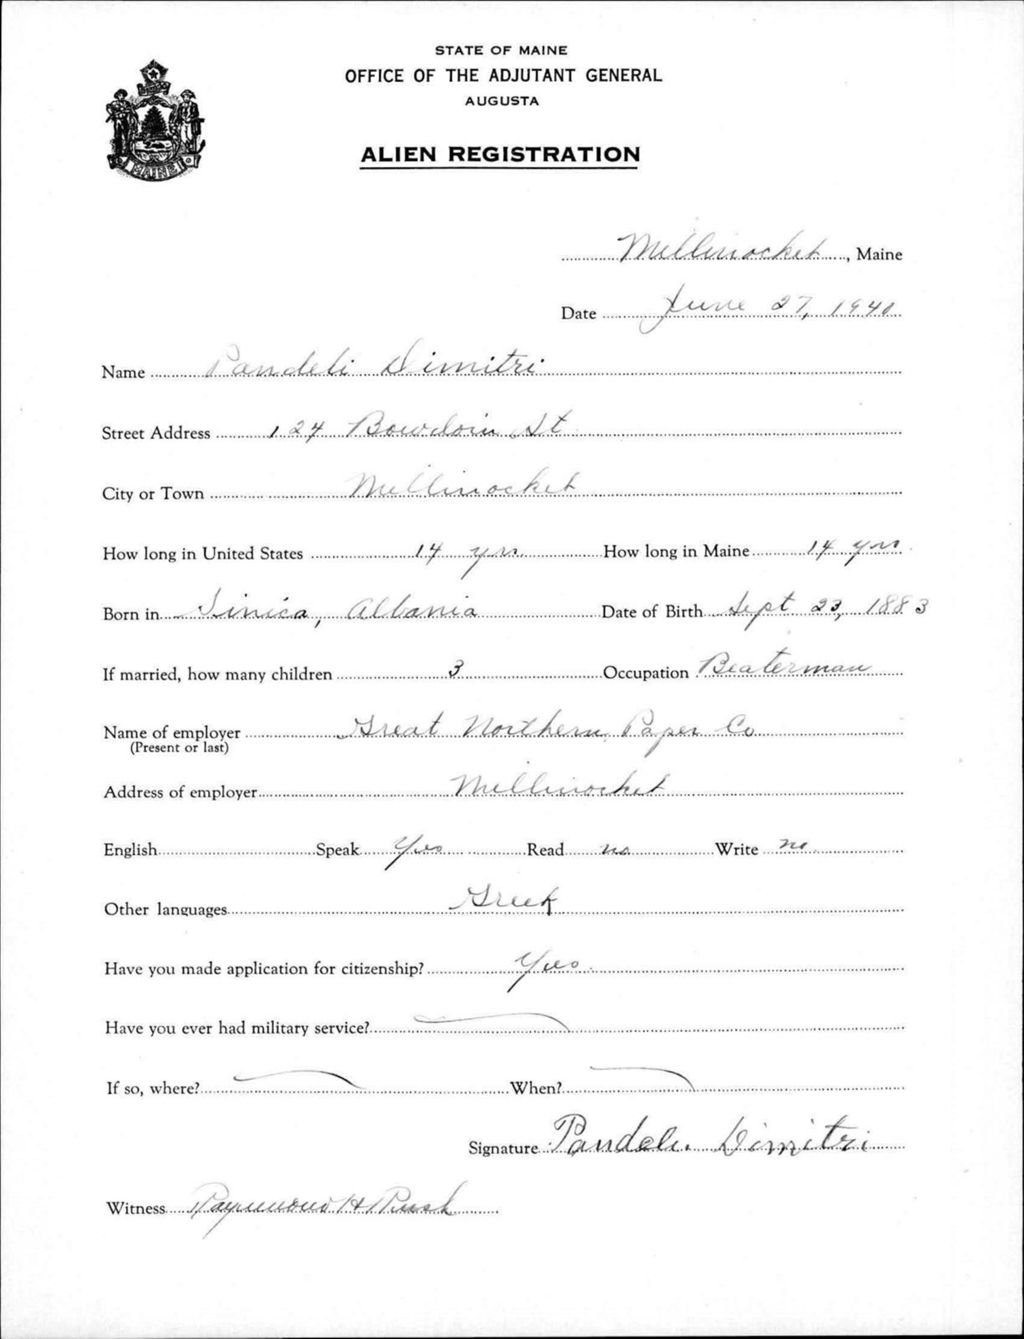 STATE OF MAINE
OFFICE OF THE ADJUTANT GENERAL
AUGUSTA
ALIEN REGISTRATION
MAINE
Millinocket, Maine
Date June 27, 1940
Name Pandeli Dimitri
Street Address 124 Bowdoin St
City or Town Millinocket
How long in United States 14 yrs. How long in Maine 14 yrs.
Born in Sinica, Albania Date of Birth Sept 23, 1883
If married, how many children 3 Occupation Beaterman
Name of employer Great Northern Paper Co
(Present or last)
Address of employer Millinocket
English Speak Yes Read no Write no
Other languages Greek
Have you made application for citizenship? Yes
Have you ever had military service?
If so, where? When?
Signature Pandeli Dimitri
Witness Raymond H Rush